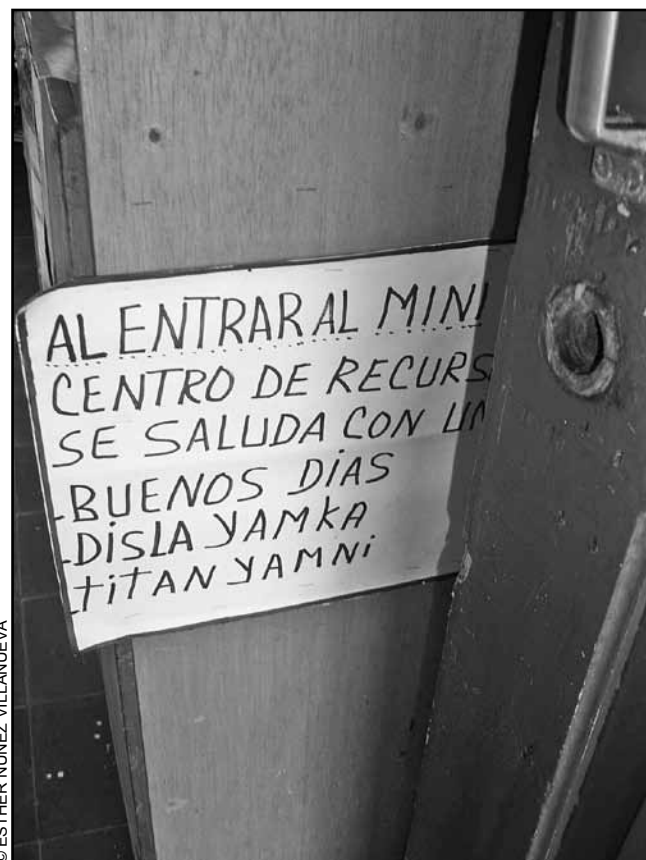 AL ENTRAR AL MINI
CENTRO DE RECURS
SE SALUDA CON UN
-BUENOS DÍAS
-DISLA YAMKA
-TITAN YAMNI
© ESTHER NÚÑEZ VILLANUEVA